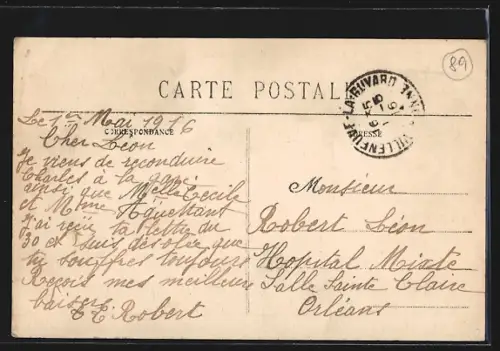 89
CARTE POSTALE
VILLENEUVE-LA-GUYARD YONNE
Le 1er Mai 1916
CORRESPONDANCE
ADRESSE
Cher Léon
Je viens de reconduire
Charles à la gare
ainsi que Melle Cécile
et Mme
J'ai reçu ta lettre du
30 et suis désolée que
tu souffres toujours
Reçois mes meilleurs
baisers
E Robert
Monsieur
Robert Léon
Hopital Mixte
Salle Sainte Claire
Orléans